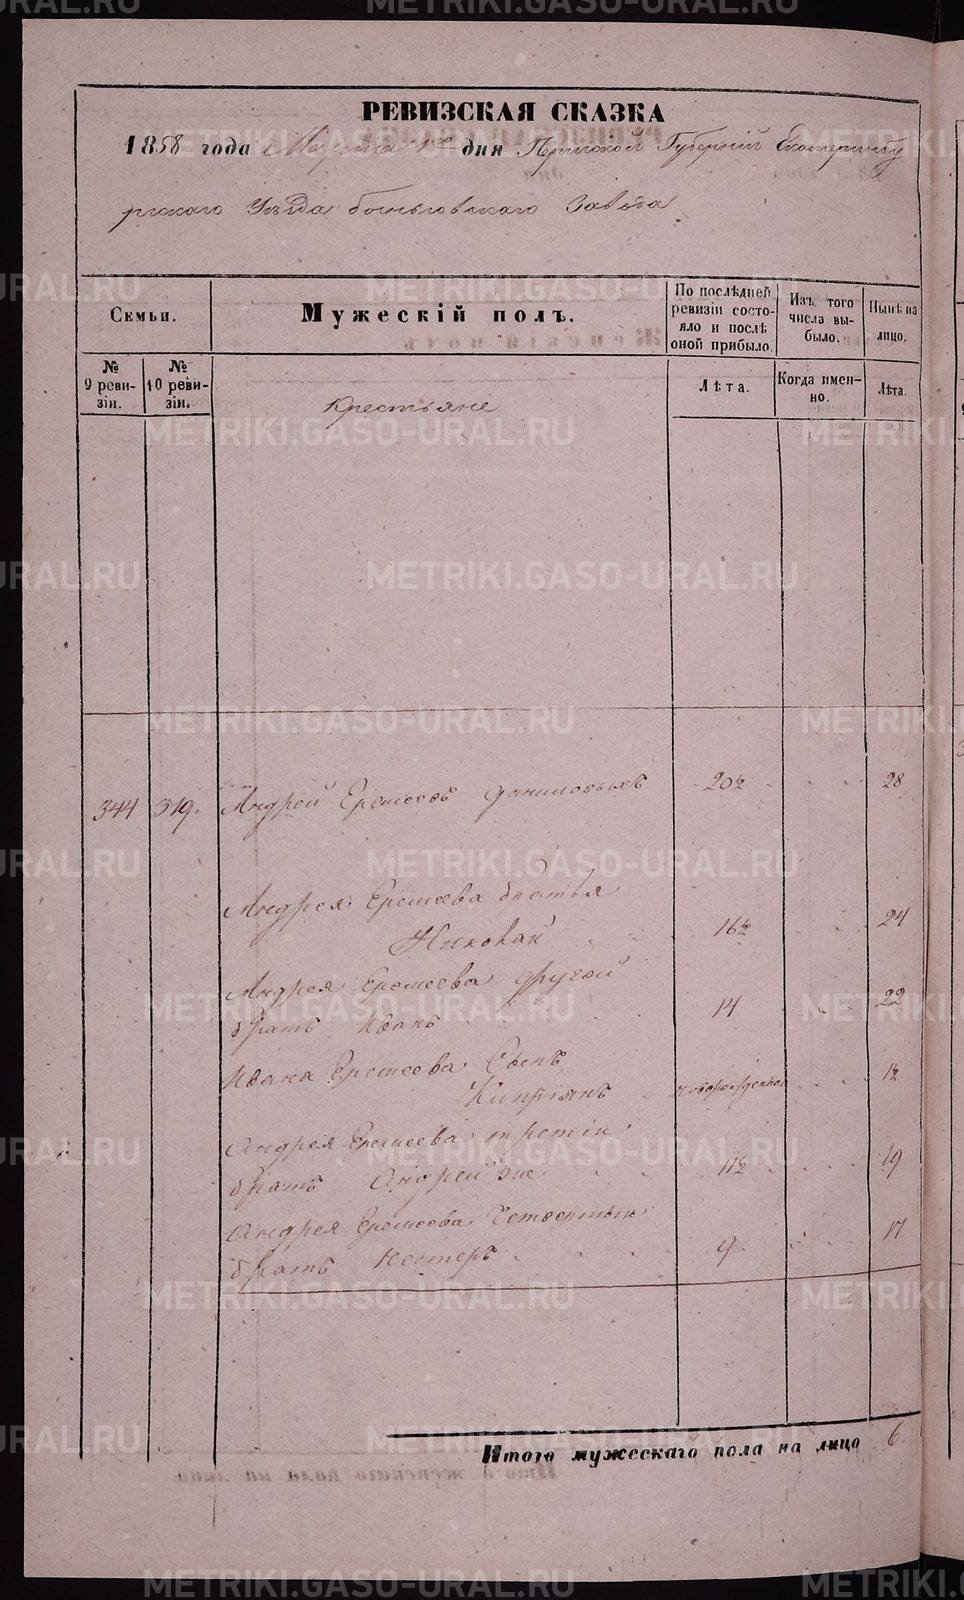 РЕВИЗСКАЯ СКАЗКА
1858 года Марта 1го дня Пермской Губерніи Екатеринбу
ргскаго Уѣзда Завода
Семьи.
Мужескій полъ.
По послѣдней ревизіи состояло и послѣ оной прибыло.
Изъ того числа выбыло.
Нынѣ на лицо.
№ 9 ревизіи.
№ 10 ревизіи.
Лѣта.
Когда именно.
Лѣта.
Крестьяне
344 319. Андрей Еремеевъ Даниловыхъ 20½ 28
Андрея Еремеева братья
Николай 16½ 24
Андрея Еремеева другой
братъ Иванъ 14 22
Ивана Еремеева Сынъ
Кипріянъ новорожденной 1½
Андрея Еремеева третій
братъ Андрей же 11½ 19
Андрея Еремеева Четвертый
братъ Нестеръ 9 17
Итого мужескаго пола на лицо 6.
METRIKI.GASO-URAL.RU